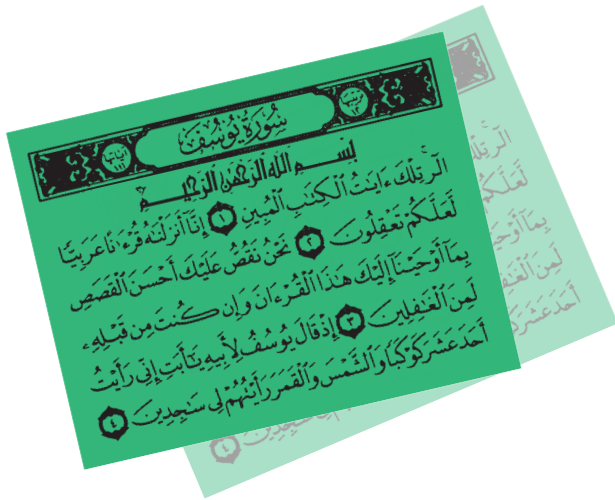 سُورَةُ يُوسُفَ
بِسْمِ اللَّهِ الرَّحْمَٰنِ الرَّحِيمِ
الٓر تِلْكَ ءَايَٰتُ ٱلْكِتَٰبِ ٱلْمُبِينِ ١ إِنَّآ أَنزَلْنَٰهُ قُرْءَٰنًا عَرَبِيًّا
لَّعَلَّكُمْ تَعْقِلُونَ ٢ نَحْنُ نَقُصُّ عَلَيْكَ أَحْسَنَ ٱلْقَصَصِ
بِمَآ أَوْحَيْنَآ إِلَيْكَ هَٰذَا ٱلْقُرْءَانَ وَإِن كُنتَ مِن قَبْلِهِۦ
لَمِنَ ٱلْغَٰفِلِينَ ٣ إِذْ قَالَ يُوسُفُ لِأَبِيهِ يَٰٓأَبَتِ إِنِّى رَأَيْتُ
أَحَدَ عَشَرَ كَوْكَبًا وَٱلشَّمْسَ وَٱلْقَمَرَ رَأَيْتُهُمْ لِى سَٰجِدِينَ ٤